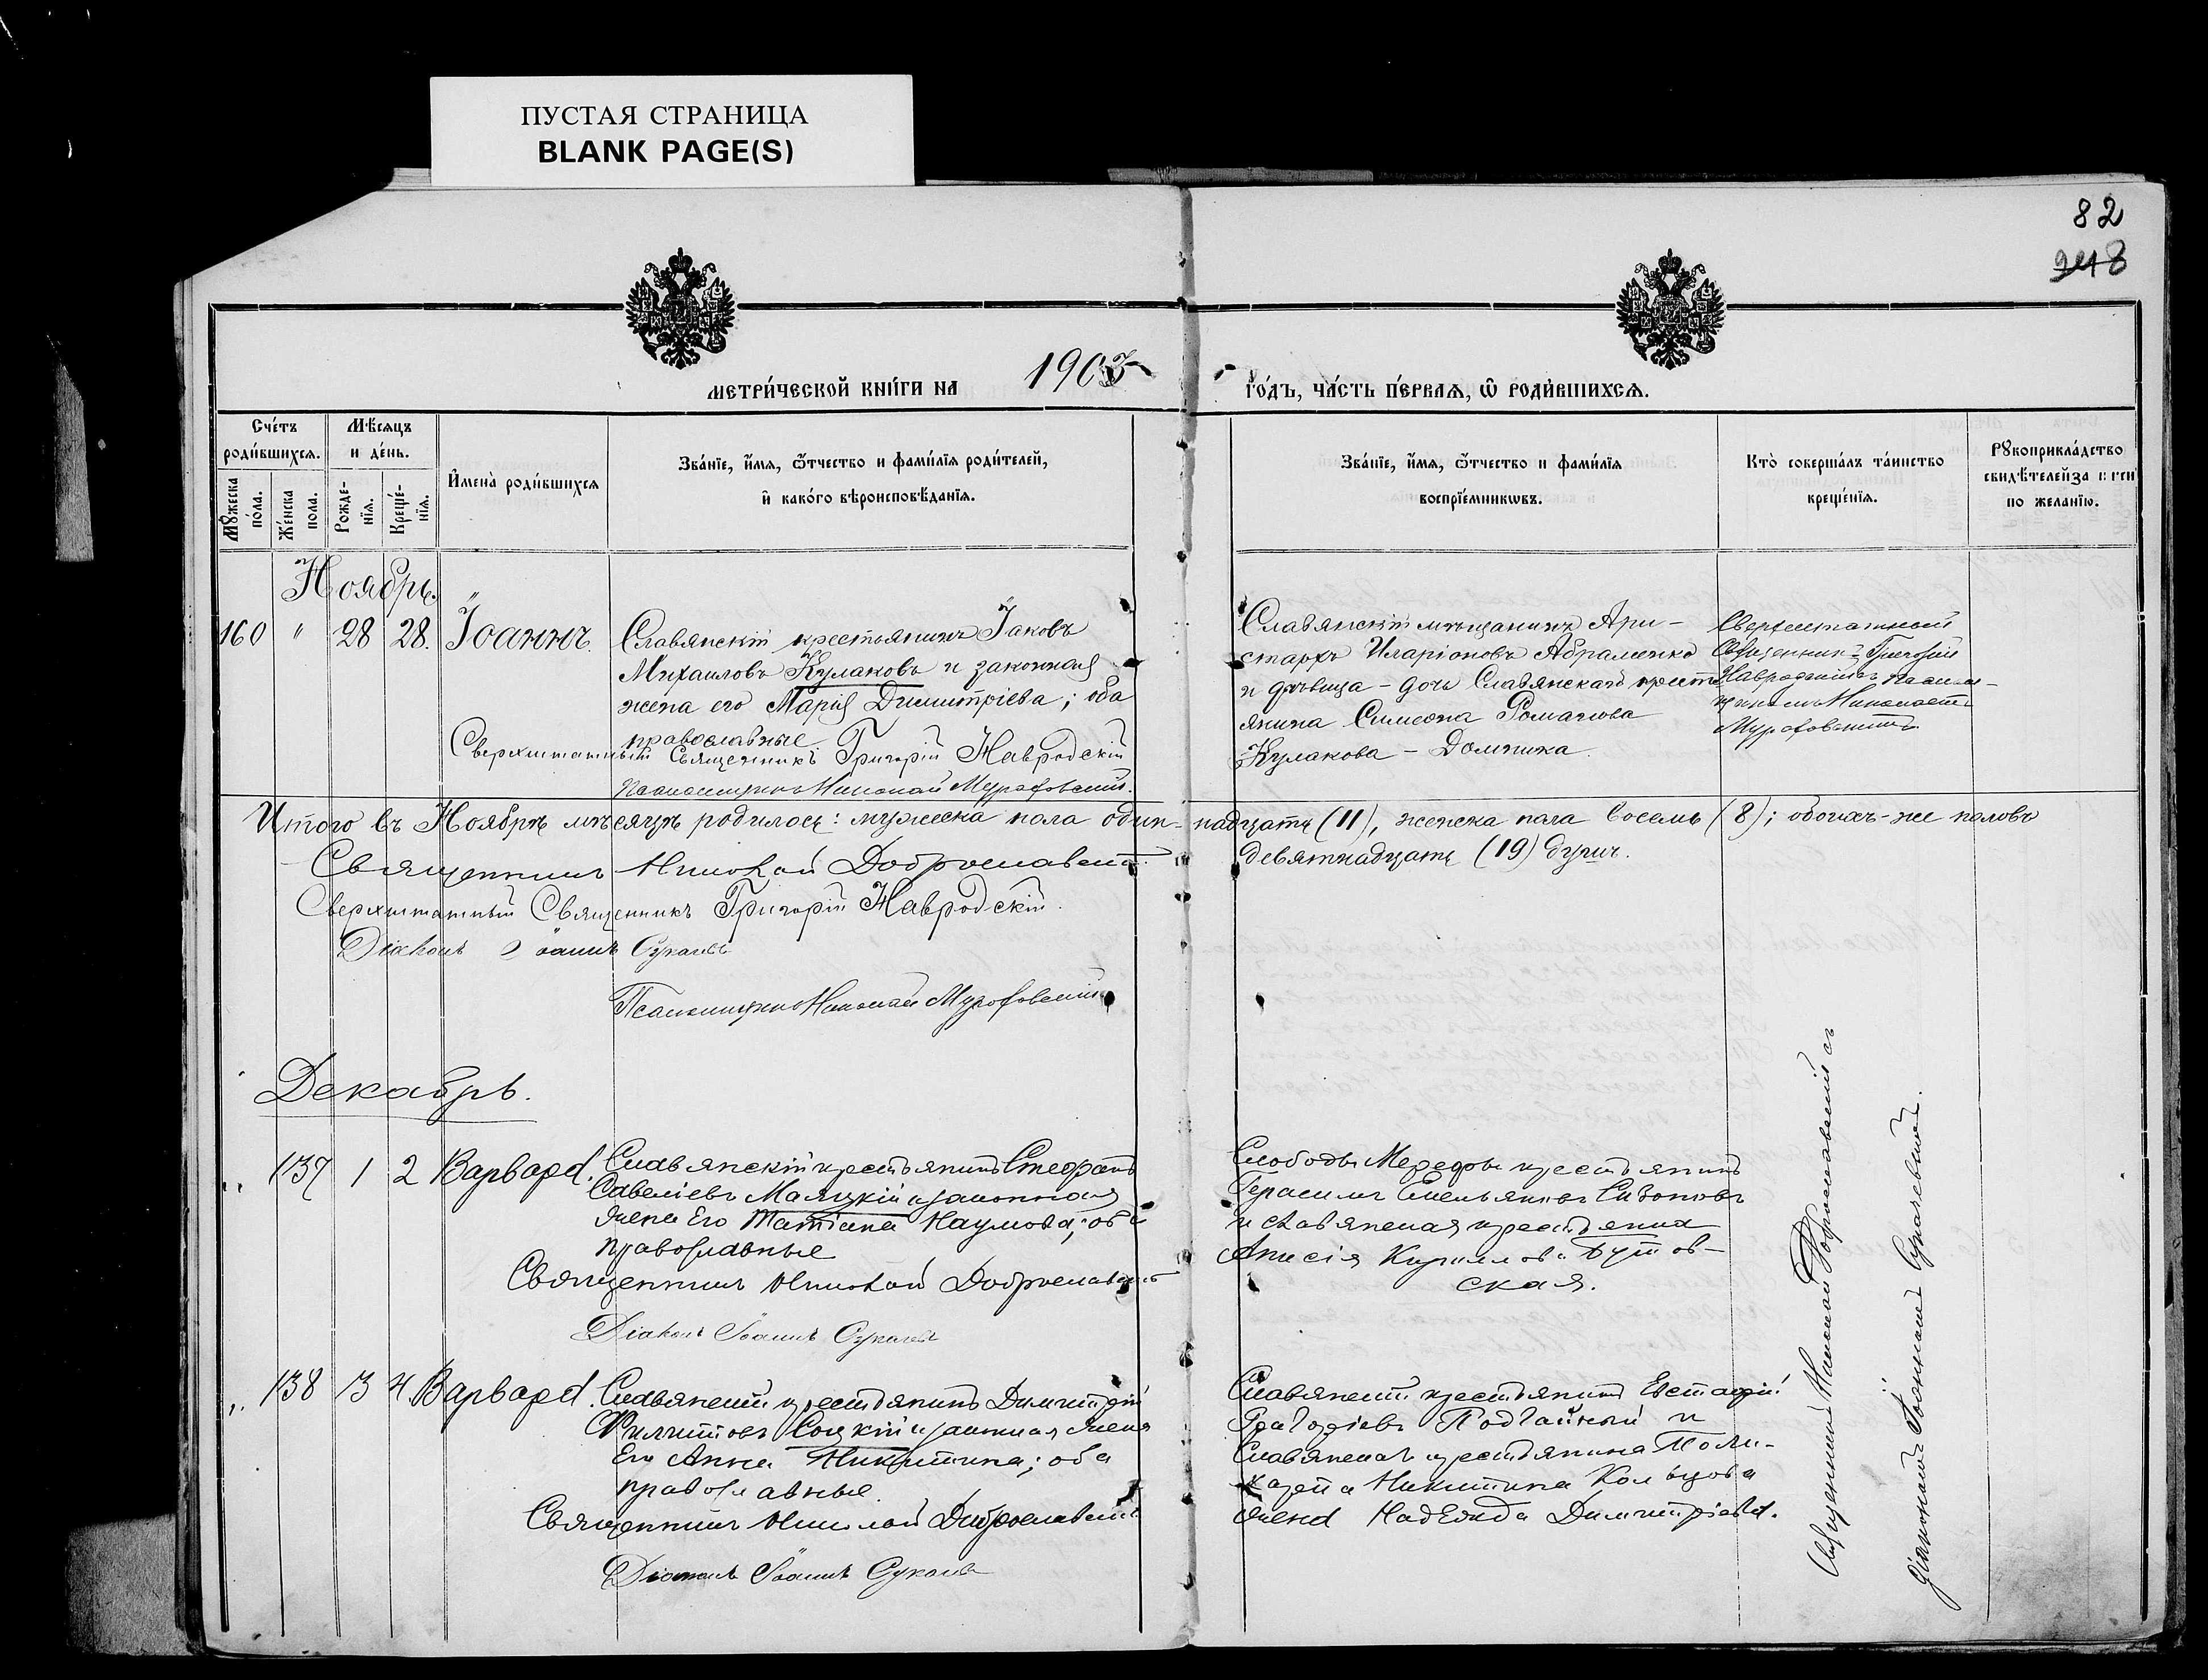 ПУСТАЯ СТРАНИЦА
BLANK PAGE(S)
82
248
МЕТРИ́ЧЕСКОЙ КНИ́ГИ НА 1903 ГО́ДЪ, ЧА́СТЬ ПЕ́РВАѦ, Ѡ҆ РОДИ́ВШИХСѦ.
Сче́тъ роди́вшихсѧ.
Мꙋ́жеска по́ла.
Же́нска пола.
Мѣ́сѧцъ и де́нь.
Рожде́нїѧ.
Креще́нїѧ.
И҆мена̀ роди́вшихсѧ
Зва́нїе, и҆́мѧ, ѻ҆́тчество и фами́лїѧ роди́телей,
и҆ како́гѡ вѣроисповѣ́данїѧ.
Зва́нїе, и҆́мѧ, ѻ҆́тчество и фами́лїѧ
воспрїе́мникѡвъ.
Кто̀ соверша́лъ та́инство
креще́нїѧ.
Рꙋкоприкла́дство
свидѣ́телей
по жела́нїю.
Ноябрь.
160 " 28 28. Іоаннъ.
Славянскій крестьянинъ Іаковъ
Михаиловъ Кулаковъ и законная
жена его Марія Димитріева; оба
православные
Сверхштатный Священникъ Григорій Навродскій
Псаломщикъ Николай
Славянскій мѣщанинъ Ари-
стархъ Иларіоновъ Абраменко
и дѣвица - дочь Славянскаго крестья
янина Симеона Романова
Кулакова - Домника
Сверхштатный
Священникъ Григорій
Навродскій съ псалом-
щикомъ Николаемъ
Итого въ Ноябрѣ мѣсяцѣ родилось: мужеска пола один-надцать (11), женска пола восемь (8); обоихъ-же половъ
девятнадцать (19) душъ.
Священникъ Николай Доброславскій
Сверхштатный Священникъ Григорій Навродскій.
Діаконъ Іоаннъ
Псаломщикъ Николай
Декабрь.
" 137 1 2 Варвара.
Славянскій крестьянинъ Стефанъ
Савеліевъ Маяцкій и законная
жена Его Татіана Наумова; оба
православные
Священникъ Николай Доброславскій
Діаконъ Іоаннъ
Слободы Мерефы крестьянинъ
Герасимъ Емельяновъ Сизоновъ
и славянская крестьянка
Анисія Кириллова
ская.
" 138 3 4 Варвара.
Славянскій крестьянинъ Димитрій
Филиповъ Соцкій и законная жена
Его Анна Никитина; оба
православные.
Священникъ Николай Доброславскій
Діаконъ Іоаннъ
Славянскій крестьянинъ Евстафій
Григоріевъ Подгайный и
Славянскаго крестьянина Поли-
карпа Никитина Кольцова
жена Надежда Димитріева.
Священникъ Николай Доброславскій съ
діакономъ Іоанномъ